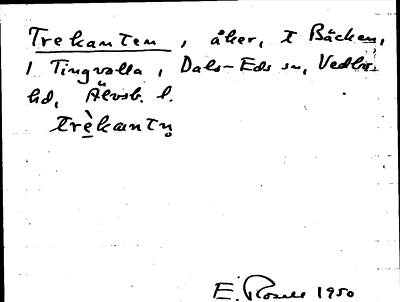 Trekanten, åker, t Bäcken,
1 Tingvalla, Dals-Eds sn, Vedbo
hd, Älvsb. l.
trèkantn̥
E. Rosell 1950